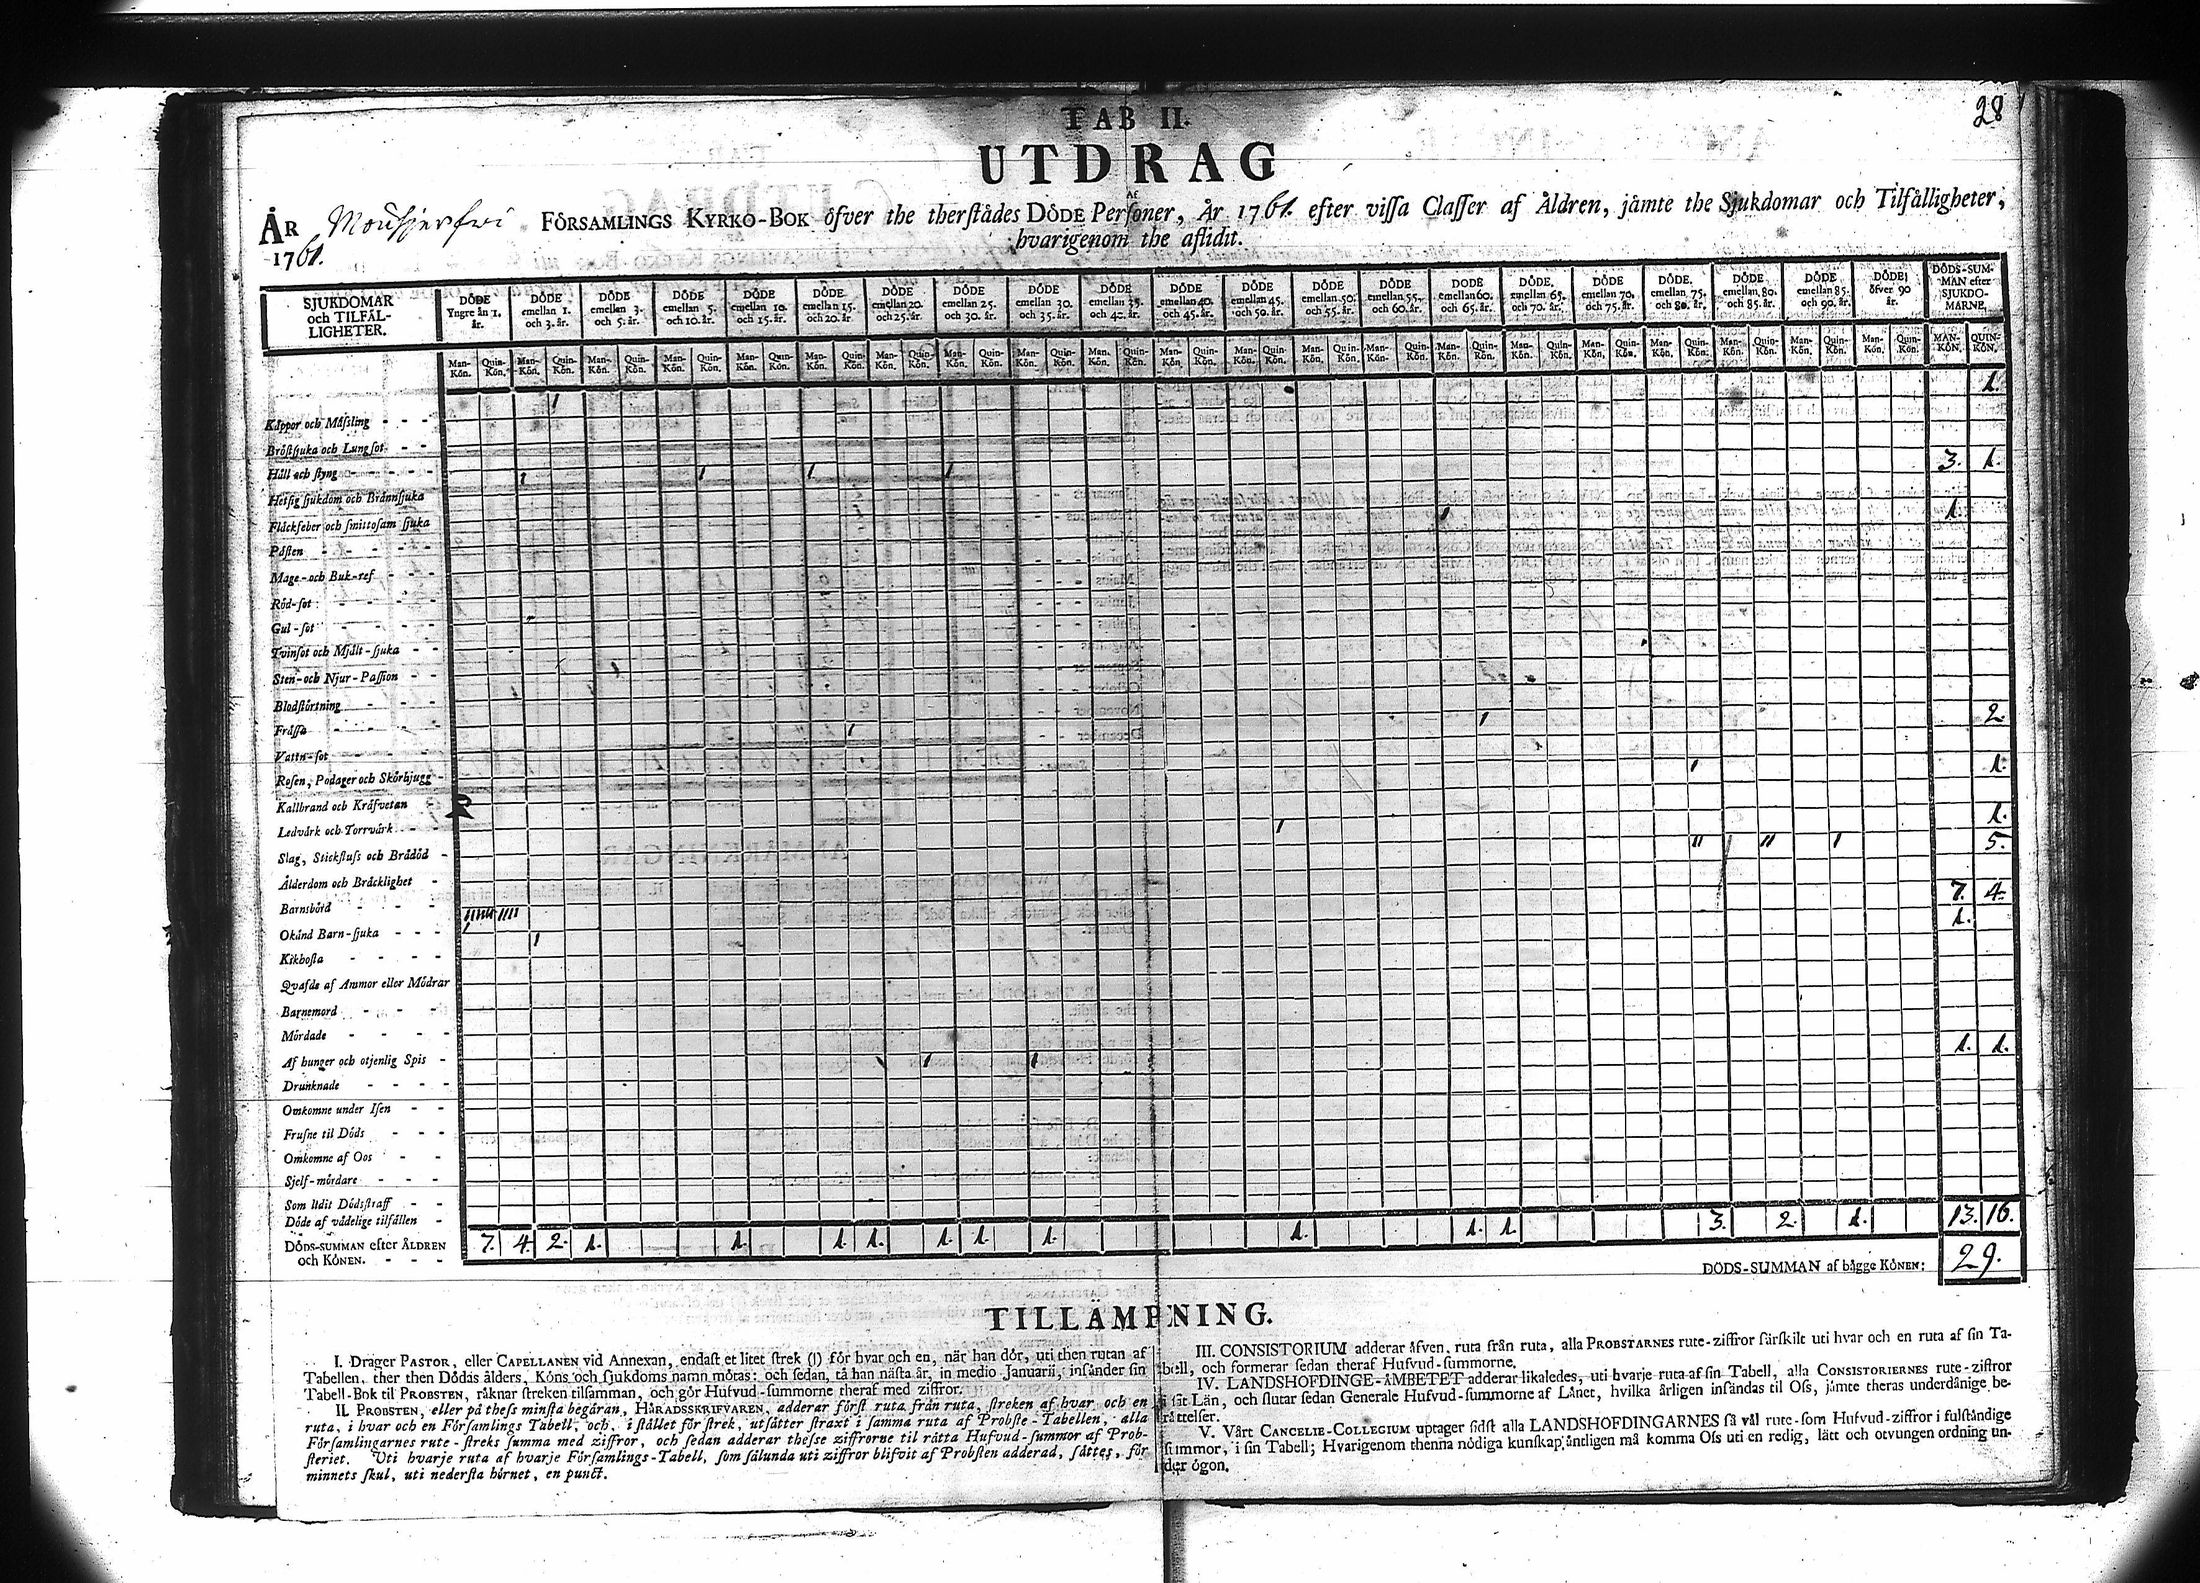 28
TAB II.
UTDRAG
AF
ÅR FÖRSAMLINGS KYRKO-BOK öfver the therstädes DÖDE Personer, År 1761. efter vissa Classer af Åldren, jämte the Sjukdomar och Tilfälligheter,
1761. hvarigenom the aflidit.
SJUKDOMAR och TILFÄL-LIGHETER.
DÖDE Yngre än 1. år.
DÖDE emellan 1. och 3. år.
DÖDE emellan 3. och 5. år.
DÖDE emellan 5. och 10. år.
DÖDE emellan 10. och 15. år.
DÖDE emellan 15. och 20. år.
DÖDE emellan 20. och 25. år.
DÖDE emellan 25. och 30. år.
DÖDE emellan 30. och 35. år.
DÖDE emellan 35. och 40. år.
DÖDE emellan 40. och 45. år.
DÖDE emellan 45. och 50. år.
DÖDE emellan 50. och 55. år.
DÖDE emellan 55. och 60. år.
DÖDE emellan 60. och 65. år.
DÖDE emellan 65. och 70. år.
DÖDE emellan 70. och 75. år.
DÖDE emellan 75. och 80. år.
DÖDE emellan 80. och 85. år.
DÖDE emellan 85. och 90. år.
DÖDE öfver 90 år.
DÖDS-SUM-MAN efter SJUKDO-MARNE.
Man-Kön. Quin-Kön. Man-Kön. Quin-Kön. Man-Kön. Quin-Kön. Man-Kön. Quin-Kön. Man-Kön. Quin-Kön. Man-Kön. Quin-Kön. Man-Kön. Quin-Kön. Man-Kön. Quin-Kön. Man-Kön. Quin-Kön. Man-Kön. Quin-Kön. Man-Kön. Quin-Kön. Man-Kön. Quin-Kön. Man-Kön. Quin-Kön. Man-Kön. Quin-Kön. Man-Kön. Quin-Kön. Man-Kön. Quin-Kön. Man-Kön. Quin-Kön. Man-Kön. Quin-Kön. Man-Kön. Quin-Kön. Man-Kön. Quin-Kön. Man-Kön. Quin-Kön. MAN-KÖN. QUIN-KÖN.
Kåppor och Mässling 1 1.
Bröstsjuka och Lungsot
Håll och styng 1 1 1 1 3. 1.
Hetsig sjukdom och Brännsjuka
Fläckfeber och smittosam sjuka 1 1.
Pästen
Mage- och Buk-ref
Röd-sot
Gul-sot
Tvinsot och Mjält-sjuka
Sten- och Njur-Passion
Blodstörtning
Frässa 1 1 2.
Vattn-sot
Rosen, Podager och Skörbjugg 1 1.
Kallbrand och Kräfvetan
Ledvärk och Torrvärk 1 1.
Slag, Stickfluss och Brådöd 11 11 1 5.
Ålderdom och Bräcklighet
Barnsbörd 1111111 1111 7. 4.
Okänd Barn-sjuka 1 1.
Kikhosta
Qvafde af Ammor eller Mödrar
Barnemord
Mördade
Af hunger och otjenlig Spis 1 1 1. 1.
Drunknade
Omkomne under Isen
Frusne til Döds
Omkomne af Oos
Sjelf-mördare
Som lidit Dödsstraff
Döde af vådelige tilfällen
DÖDS-SUMMAN efter ÅLDREN och KÖNEN. 7. 4. 2. 1. 1. 1. 1. 1. 1. 1. 1. 1. 1. 3. 2. 1. 13. 16.
DÖDS-SUMMAN af bägge KÖNEN: 29.
TILLÄMPNING.
I. Drager PASTOR, eller CAPELLANEN vid Annexan, endast et litet strek (I) för hvar och en, när han dör, uti then rutan af
Tabellen, ther then Dödas ålders, Köns och sjukdoms namn mötas: och sedan, tå han nästa år, in medio Januarii, insänder sin
Tabell-Bok til PROBSTEN, räknar streken tillsamman, och gör Hufvud-summorne theraf med ziffror.
II. PROBSTEN, eller på thess minsta begäran, HÄRADSSKRIFVAREN, adderar först ruta från ruta, streken af hvar och en
ruta, i hvar och en Församlings Tabell, och, i stället för strek, utsätter straxt i samma ruta af Probste-Tabellen, alla
Församlingarnes rute-streks summa med ziffror, och sedan adderar thesse ziffrorne til rätta Hufvud-summor af Prob-
steriet. Uti hvarje ruta af hvarje Församlings-Tabell, som sålunda uti ziffror blifvit af Probsten adderad, sättes, för
minnets skul, uti nedersta hörnet, en punct.
III. CONSISTORIUM adderar äfven, ruta från ruta, alla PROBSTARNES rute-ziffror särskilt uti hvar och en ruta af sin Ta-
bell, och formerar sedan theraf Hufvud-summorne.
IV. LANDSHÖFDINGE-ÄMBETET adderar likaledes, uti hvarje ruta af sin Tabell, alla CONSISTORIERNES rute-ziffror
i sit Län, och slutar sedan Generale Hufvud-summorne af Länet, hvilka årligen insändas til Oss, jämte theras underdånige be-
rättelser.
V. Vårt CANCELIE-COLLEGIUM uptager sidst alla LANDSHÖFDINGARNES så väl rute- som Hufvud-ziffror i fulständige
summor, i sin Tabell; Hvarigenom thenna nödiga kunskap äntligen må komma Oss uti en redig, lätt och otvungen ordning un-
der ögon.